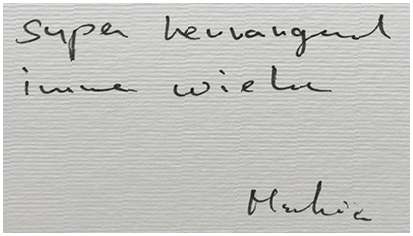 super hervorragend
immer wieder